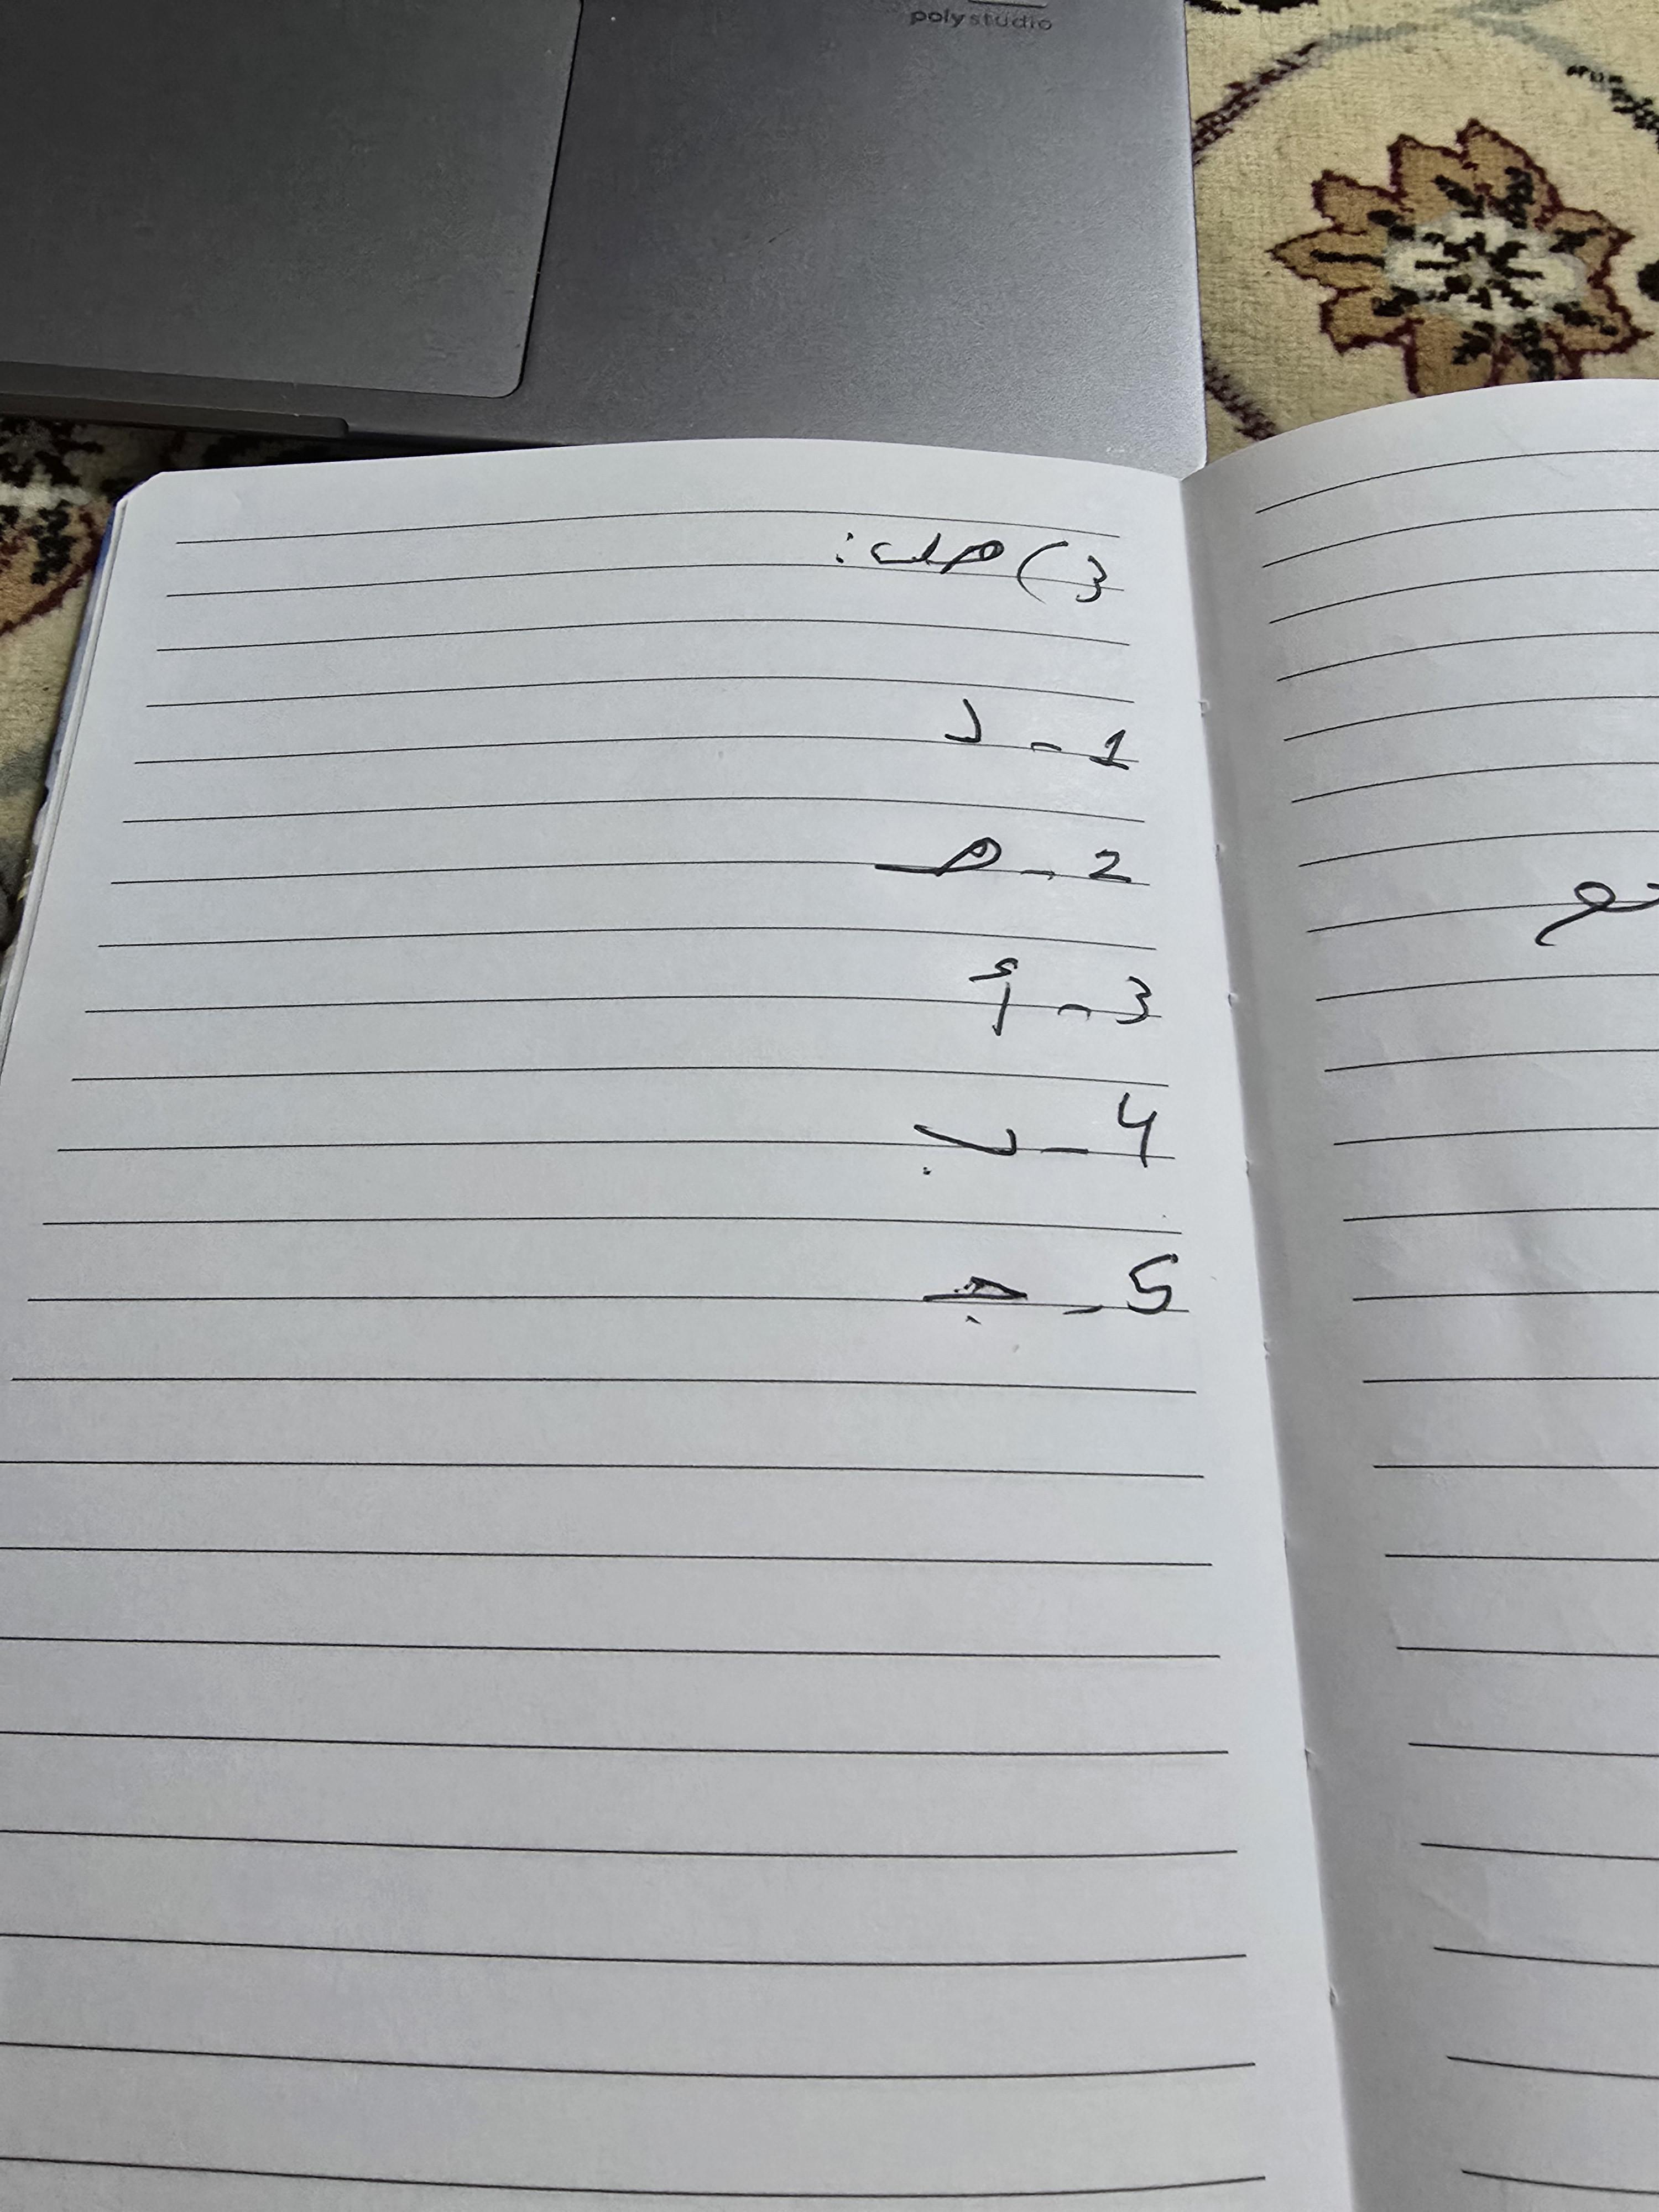 poly studio
3) صل:
1 - د
2 - هـ
3 - أ
4 - ب
5 - جـ